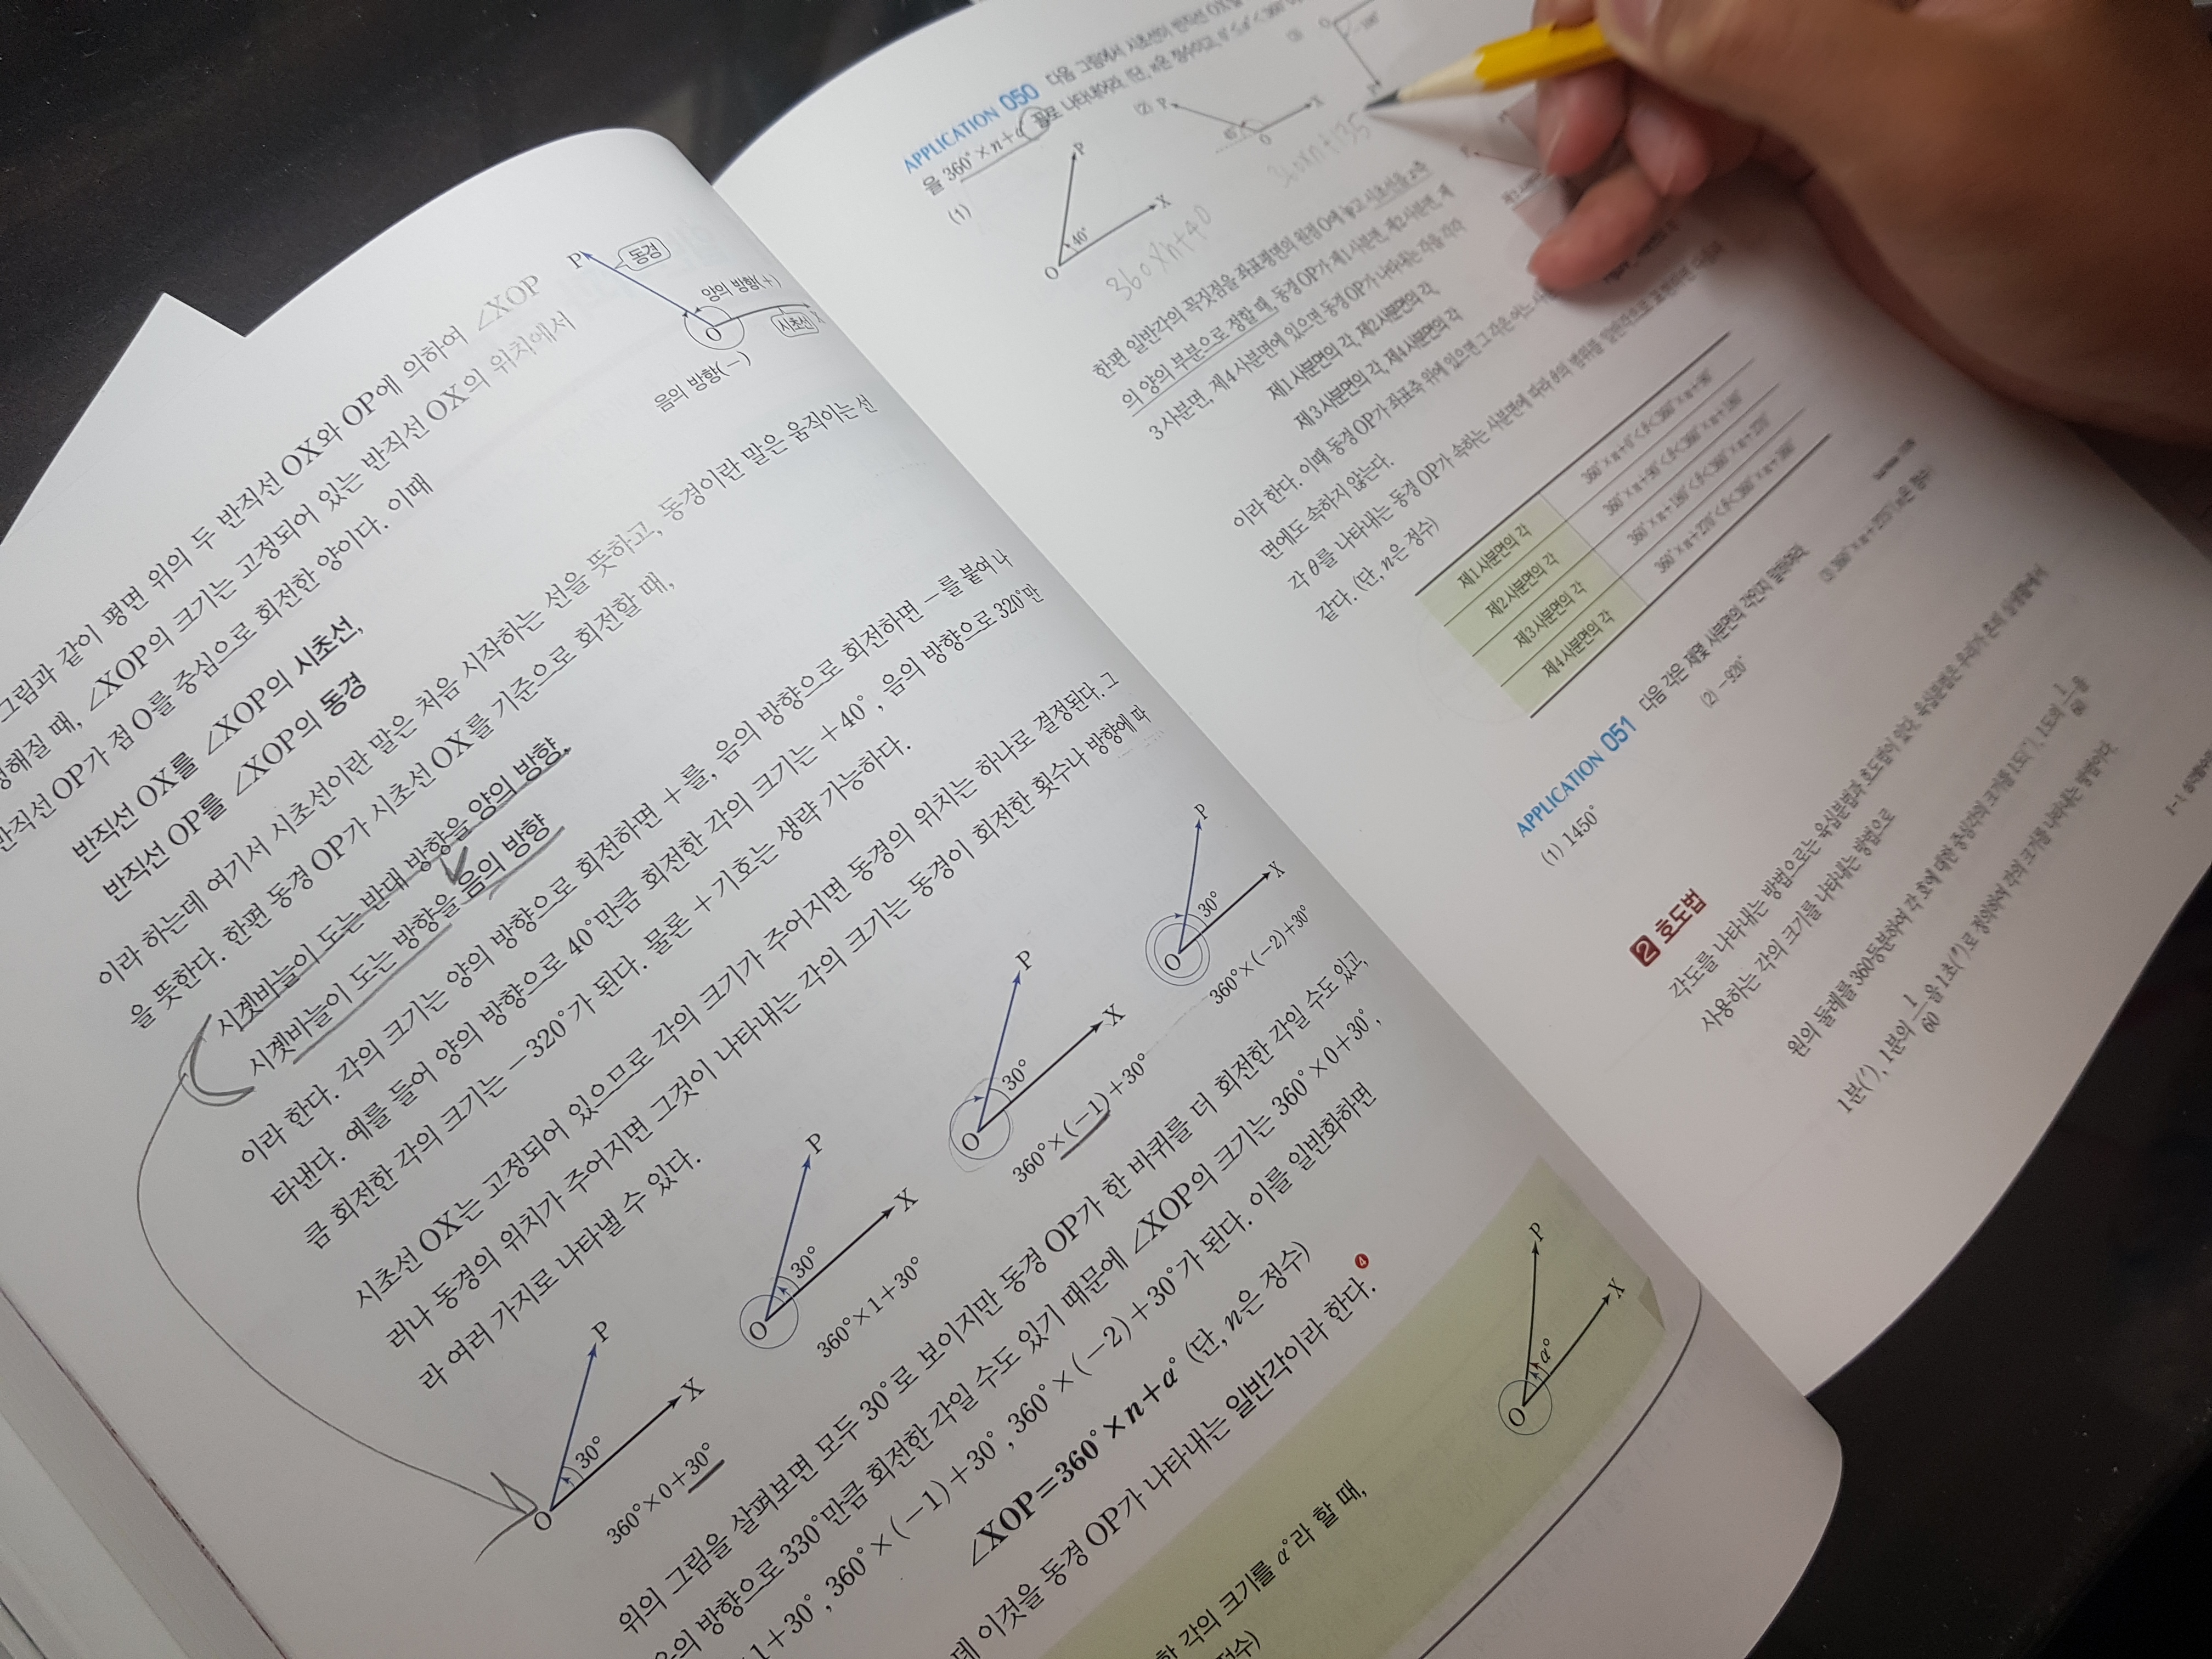 그림과 같이 평면 위의 두 반직선 OX와 OP에 의하여 ∠XOP
정해질 때, ∠XOP의 크기는 고정되어 있는 반직선 OX의 위치에서
반직선 OP가 점 O를 중심으로 회전한 양이다. 이때
반직선 OX를 ∠XOP의 시초선,
반직선 OP를 ∠XOP의 동경
P
동경
양의 방향(+)
O
시초선
X
음의 방향(-)
이라 하는데 여기서 시초선이란 말은 처음 시작하는 선을 뜻하고, 동경이란 말은 움직이는 선
을 뜻한다. 한편 동경 OP가 시초선 OX를 기준으로 회전할 때,
시곗바늘이 도는 반대 방향을 양의 방향,
시곗바늘이 도는 방향을 음의 방향
이라 한다. 각의 크기는 양의 방향으로 회전하면 +를, 음의 방향으로 회전하면 -를 붙여 나
타낸다. 예를 들어 양의 방향으로 40°만큼 회전한 각의 크기는 +40°, 음의 방향으로 320°만
큼 회전한 각의 크기는 -320°가 된다. 물론 +기호는 생략 가능하다.
시초선 OX는 고정되어 있으므로 각의 크기가 주어지면 동경의 위치는 하나로 결정된다. 그
러나 동경의 위치가 주어지면 그것이 나타내는 각의 크기는 동경이 회전한 횟수나 방향에 따
라 여러 가지로 나타낼 수 있다.
P
X
O
30°
360°×0+30°
P
X
O
30°
360°×1+30°
P
X
O
30°
360°×(-1)+30°
P
X
O
30°
360°×(-2)+30°
위의 그림을 살펴보면 모두 30°로 보이지만 동경 OP가 한 바퀴를 더 회전한 각일 수도 있고,
음의 방향으로 330°만큼 회전한 각일 수도 있기 때문에 ∠XOP의 크기는 360°×0+30°,
1+30°, 360°×(-1)+30°, 360°×(-2)+30°가 된다. 이를 일반화하면
∠XOP=360°×n+α° (단, n은 정수)
데 이것을 동경 OP가 나타내는 일반각이라 한다. ❹
한 각의 크기를 α°라 할 때,
정수)
P
X
O
α°
APPLICATION 050 다음 그림에서 시초선이 반직선 OX일
을 360°×n+α° 꼴로 나타내어라. (단, n은 정수이고,
(1)
P
X
O
40°
360×n+40
(2)
P
X
O
45°
360×n+135
(3)
O
P
한편 일반각의 꼭짓점을 좌표평면의 원점 O에 놓고 시초선을 x축
의 양의 부분으로 정할 때, 동경 OP가 제1사분면, 제2사분면, 제
3사분면, 제4사분면에 있으면 동경 OP가 나타내는 각을 각각
제1사분면의 각, 제2사분면의 각,
제3사분면의 각, 제4사분면의 각
이라 한다. 이때 동경 OP가 좌표축 위에 있으면 그 각은 어느 사
면에도 속하지 않는다.
각 θ를 나타내는 동경 OP가 속하는 사분면에 따라 θ의 범위를 일반각으로 표현하면 다음과
같다. (단, n은 정수)
제1사분면의 각 360°×n+0°<θ<360°×n+90°
제2사분면의 각 360°×n+90°<θ<360°×n+180°
제3사분면의 각 360°×n+180°<θ<360°×n+270°
제4사분면의 각 360°×n+270°<θ<360°×n+360°
APPLICATION 051 다음 각은 제몇 사분면의 각인지 말하여라.
(1) 1450°
(2) -920°
2 호도법
각도를 나타내는 방법으로는 육십분법과 호도법이 있다. 육십분법은 우리가 흔히 실생활에서
사용하는 각의 크기를 나타내는 방법으로
원의 둘레를 360등분하여 각 호에 대한 중심각의 크기를 1도(°), 1도의 1/60을
1분(′), 1분의 1/60을 1초(″)로 정의하여 각의 크기를 나타내는 방법이다.